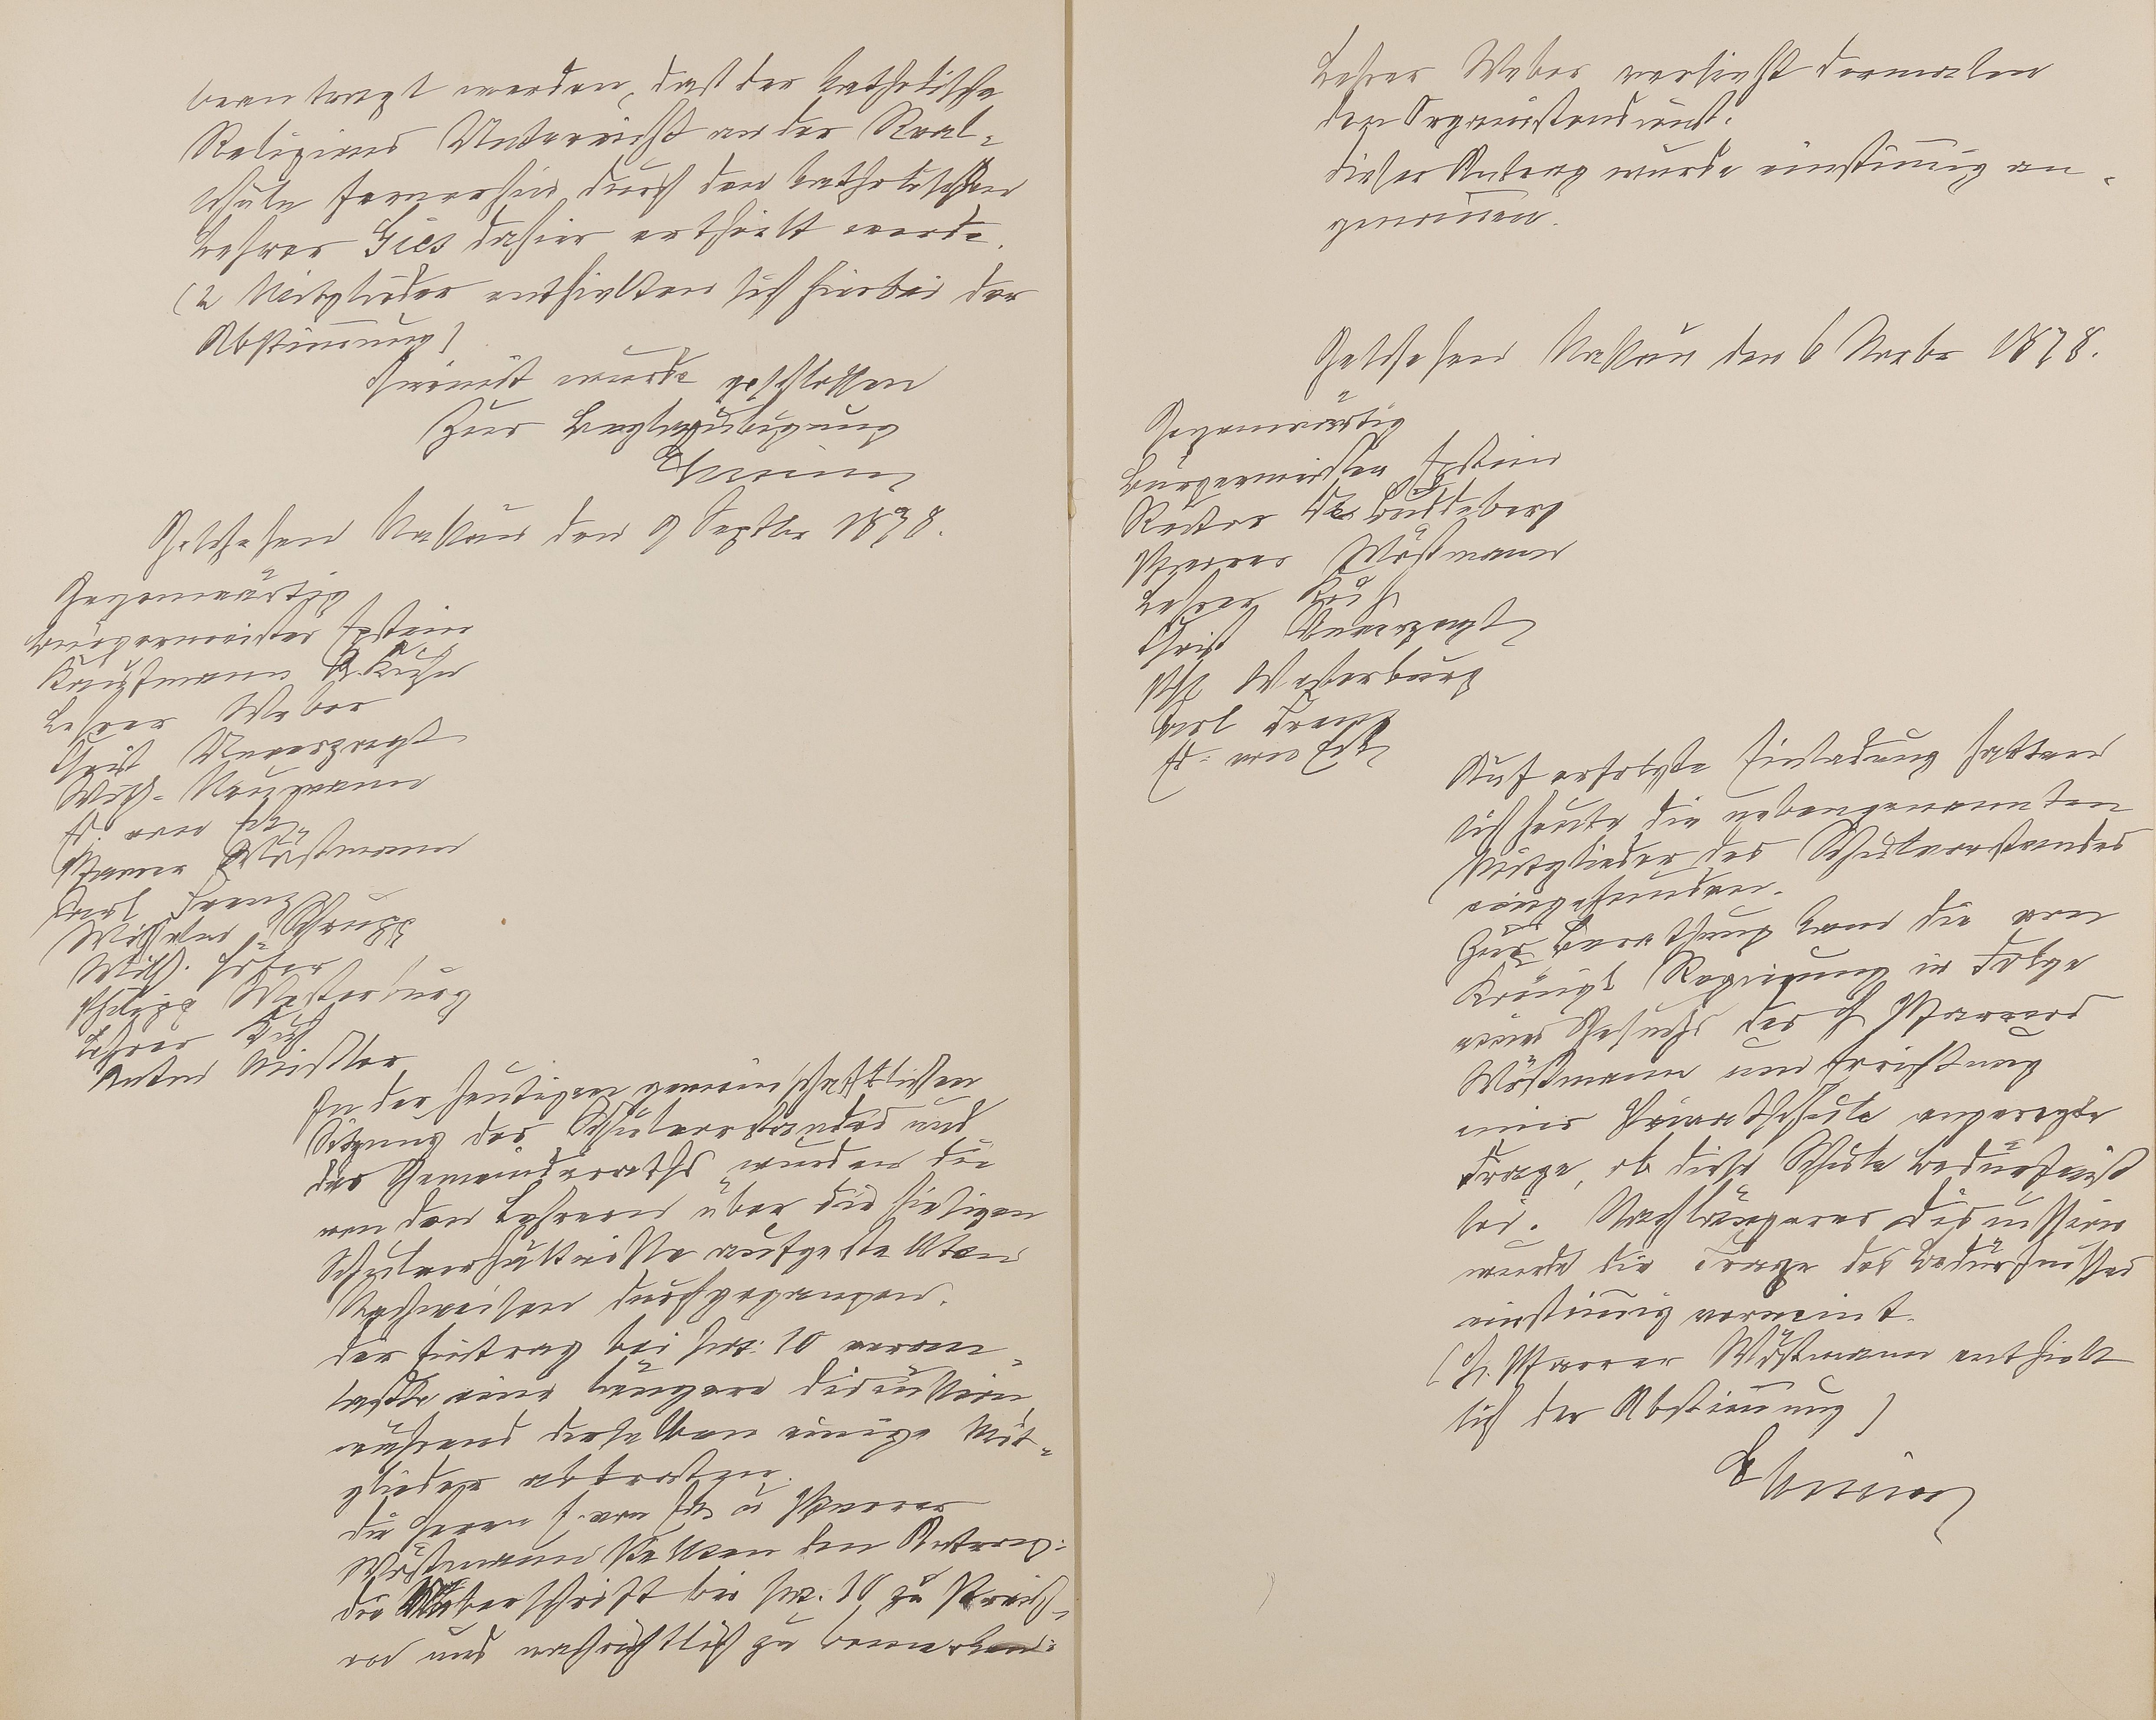 beantragt werden, daß der katholische
Religions Unterricht an der Real-
schule fernerhin durch den katholischen
Lehrer Gies dahier ertheilt werde.
(2 Mitglieder enthielten sich hierbei der
Abstimmung)
Hiermit wurde geschlossen
Zur Beglaubigung
Geschehen Nassau den 9 Septbr 1878.
Gegenwärtig
Bürgermeister Epstein
Kaufmann A. Kuhn
Lehrer Weber
Christ Unverzagt
Wilh. Neumann
Pfarrer Wüstmann
Karl Franz
Wilhelm
Wilh. Hofer
Philipp Westerburg
Lehrer Kuch
Anton Mißler
In der heutigen gemeinschaftlichen
Sitzung des Schulvorstandes und
des Gemeinderaths wurden die
von den Lehrern über die hiesigen
Schulverhältnisse aufgestellten
Nachweisen durchgegangen.
Der Eintrag bei pos. 10 veran-
laßte eine längere Discussion,
während derselben einige Mit-
glieder abtraten.
Die Herrn F. von Eck u Pfarrer
Wüstmann stellten den Antrag:
die Ueberschrift bei pos. 10 zu streich-
en und nachrichtlich zu bemerken:
Lehrer Weber versieht dermalen
den Organistendienst.
Dieser Antrag wurde einstimmig an-
genommen.
Geschehen Nassau den 6 Novbr 1878.
Gegenwärtig
Bürgermeister Epstein
Rector Dr. Buddeberg
Pfarrer Wüstmann
Lehrer Kuch
Christ Unverzagt
Ph Westerburg
Karl Franz
F. von Eck
Auf erfolgte Einladung hatten
sich heute die nebengenannten
Mitglieder des Schulvorstandes
eingefunden.
Zur Berathung kam die von
Königl Regierung in Folge
eines Gesuchs des H Pfarrers
Wüstmann um Errichtung
einer Privatschule angeregte
Frage, ob diese Schule Bedürfniß
sei. Nach längerer Discussion
wurde die Frage des Bedürfnisses
einstimmig verneint.
(H. Pfarrer Wüstmann enthielt
sich der Abstimmung)